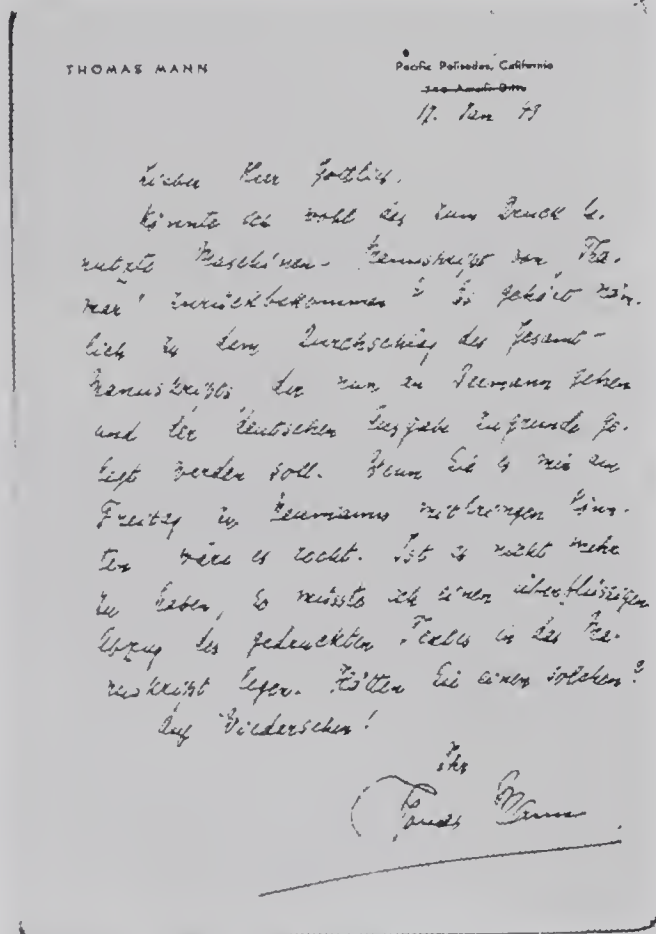 THOMAS MANN
Pacific Palisades, California
740 Amalfi Drive
17. Jan 43
Lieber Herr Gottlieb,
könnte ich wohl das zum Druck be-
nutzte Maschinen-Manuskript von "Tha-
mar" zurückbekommen? Es gehört näm-
lich zu dem Durchschlag des Gesamt-
manuskripts der nun an Bermann gehen
und der deutschen Ausgabe zugrunde ge-
legt werden soll. Wenn Sie es mir am
Freitag zu Neumanns mitbringen könn-
ten wäre es recht. Ist es nicht mehr
zu haben, so müsste ich einen überflüssigen
Abzug des gedruckten Textes in das Ma-
nuskript legen. Hätten Sie einen solchen?
Auf Wiedersehen!
Ihr
Thomas Mann